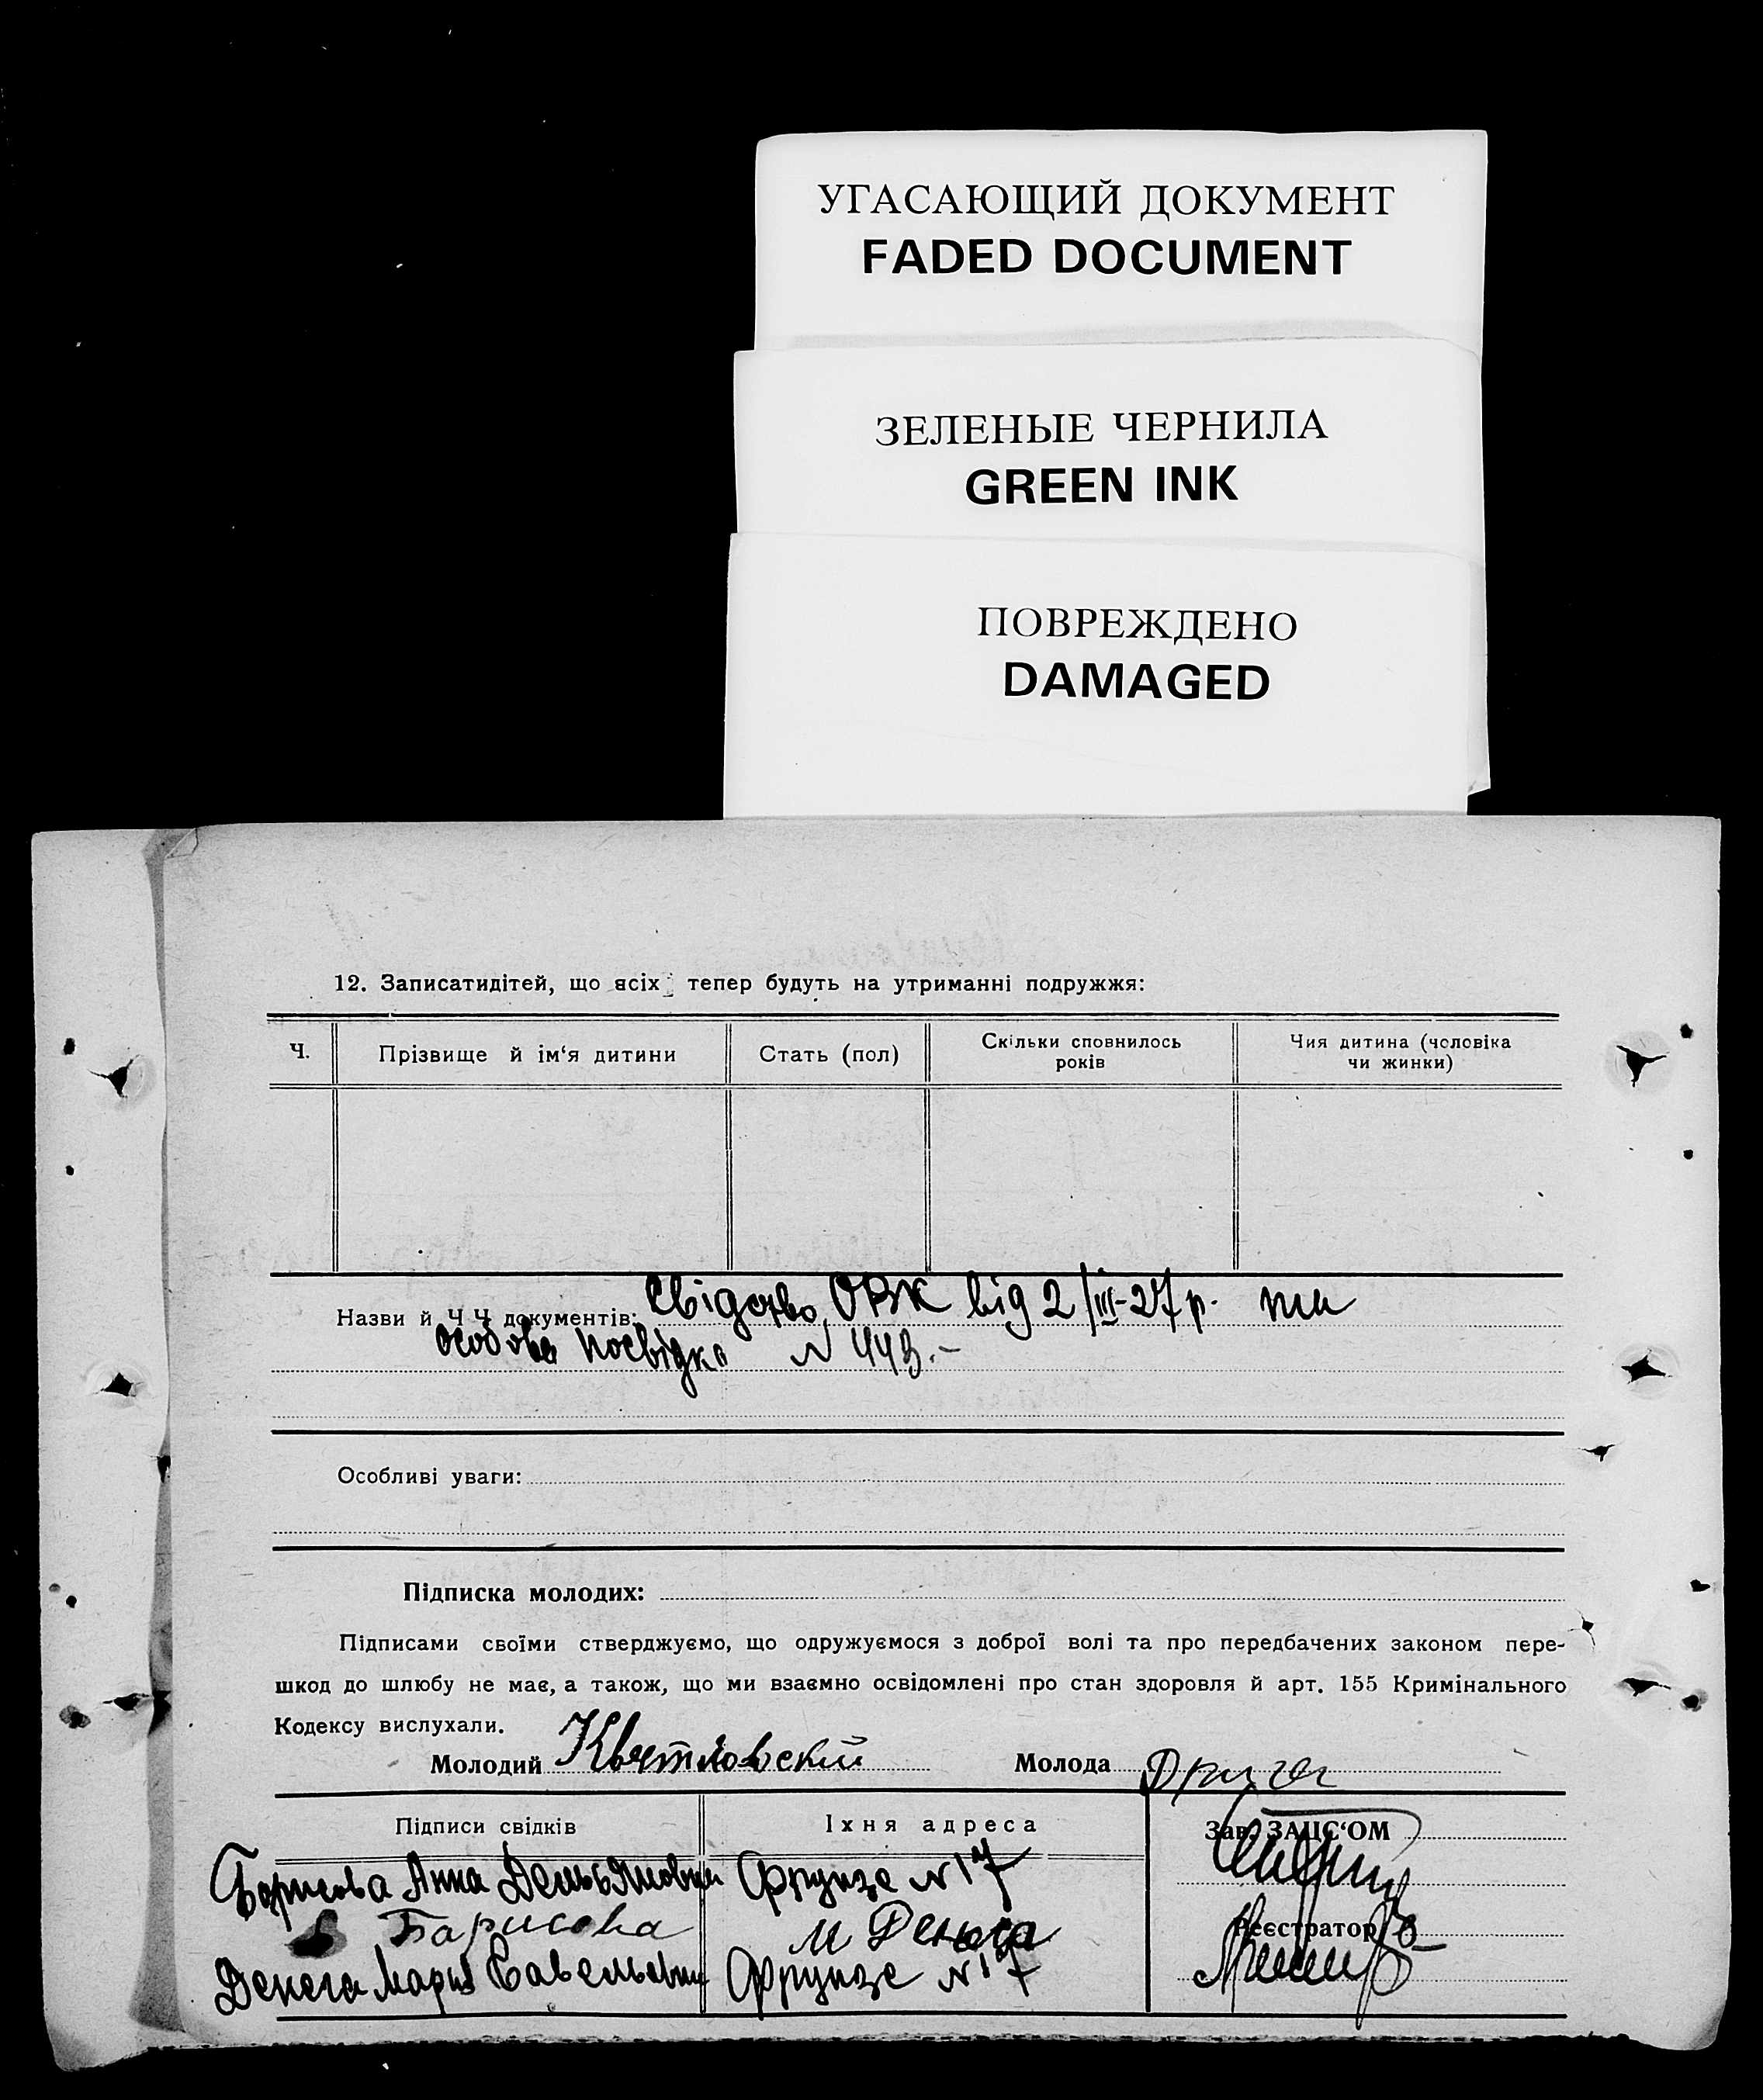 УГАСАЮЩИЙ ДОКУМЕНТ
FADED DOCUMENT
ЗЕЛЕНЫЕ ЧЕРНИЛА
GREEN INK
ПОВРЕЖДЕНО
DAMAGED
12. Записатидітей, що всіх тепер будуть на утриманні подружжя:
Ч.
Прізвище й ім‘я дитини
Стать (пол)
Скільки сповнилось років
Чия дитина (чоловіка чи жинки)
Назви й Ч Ч документів: Свідоцтво ОВК від 2/III-27 р. та
особова посвідка N 443.-
Особливі уваги:
Підписка молодих:
Підписами своїми стверджуємо, що одружуємося з доброї волі та про передбачених законом пере-
шкод до шлюбу не має, а також, що ми взаємно освідомлені про стан здоровля й арт. 155 Кримінального
Кодексу вислухали.
Молодий Квятковский Молода
Підписи свідків
Їхня адреса
Зав. ЗАЦС‘ОМ
Борисова Анна Демьяновна Фрунзе N 17
Реєстратор
Барисова
М Денега
Денега Мария Савельевна Фрунзе N 17